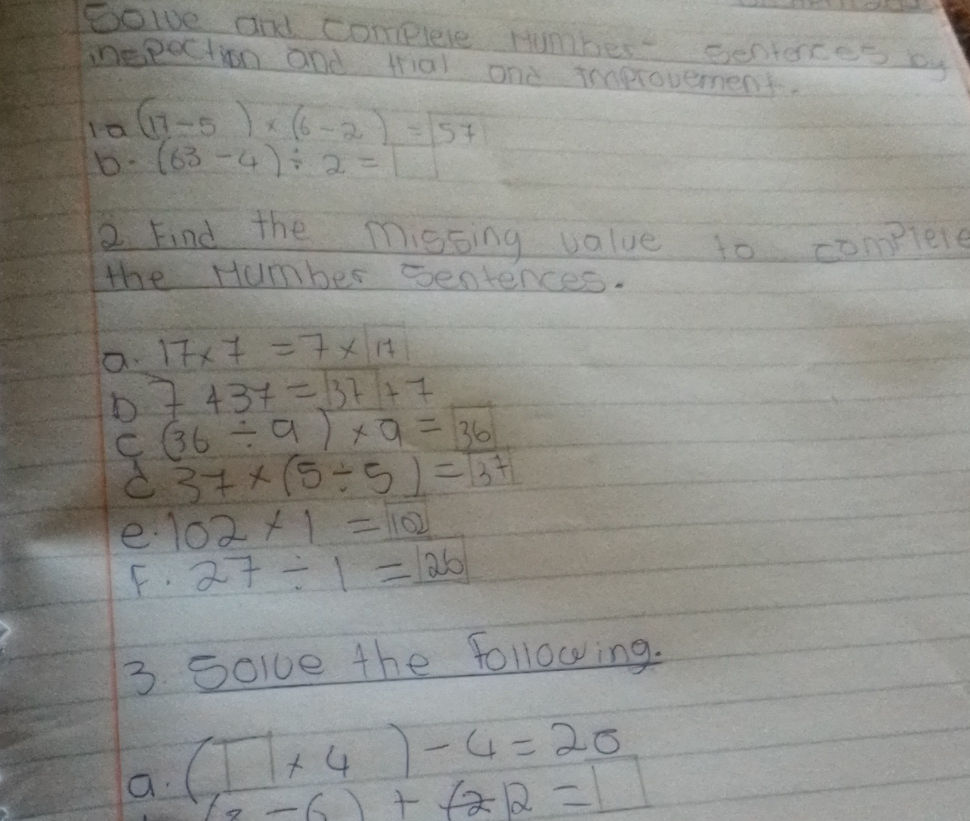 Solve and complete Number sentences by
inspection and trial and improvement.
1.a (17-5) × (6-2) = 57
b. (63-4) ÷ 2 =
2. Find the missing value to complete
the Number sentences.
a. 17×7 = 7×17
b 7+37 = 37+7
c (36 ÷ 9) × 9 = 36
d 37 × (5÷5) = 37
e. 102 × 1 = 102
f. 27 ÷ 1 = 26
3. Solve the following.
a. ( × 4) - 4 = 20